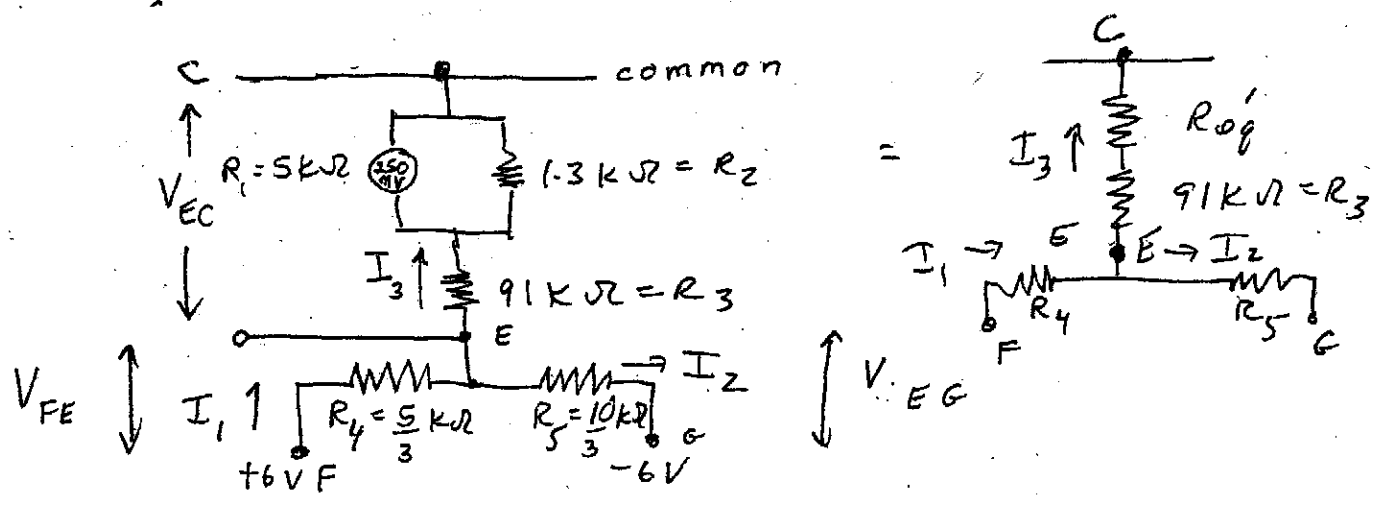 C common
V_EC
R₁=5kΩ 250 MV 1.3 kΩ = R₂
I₃ 91 kΩ = R₃
E
V_FE I₁ R₄ = 5/3 kΩ R₅ = 10/3 kΩ → I₂
+6V F G -6V
=
C
I₃ ↑ Req'
91kΩ = R₃
I₁ → E E → I₂
R₄ R₅
F G
V EG